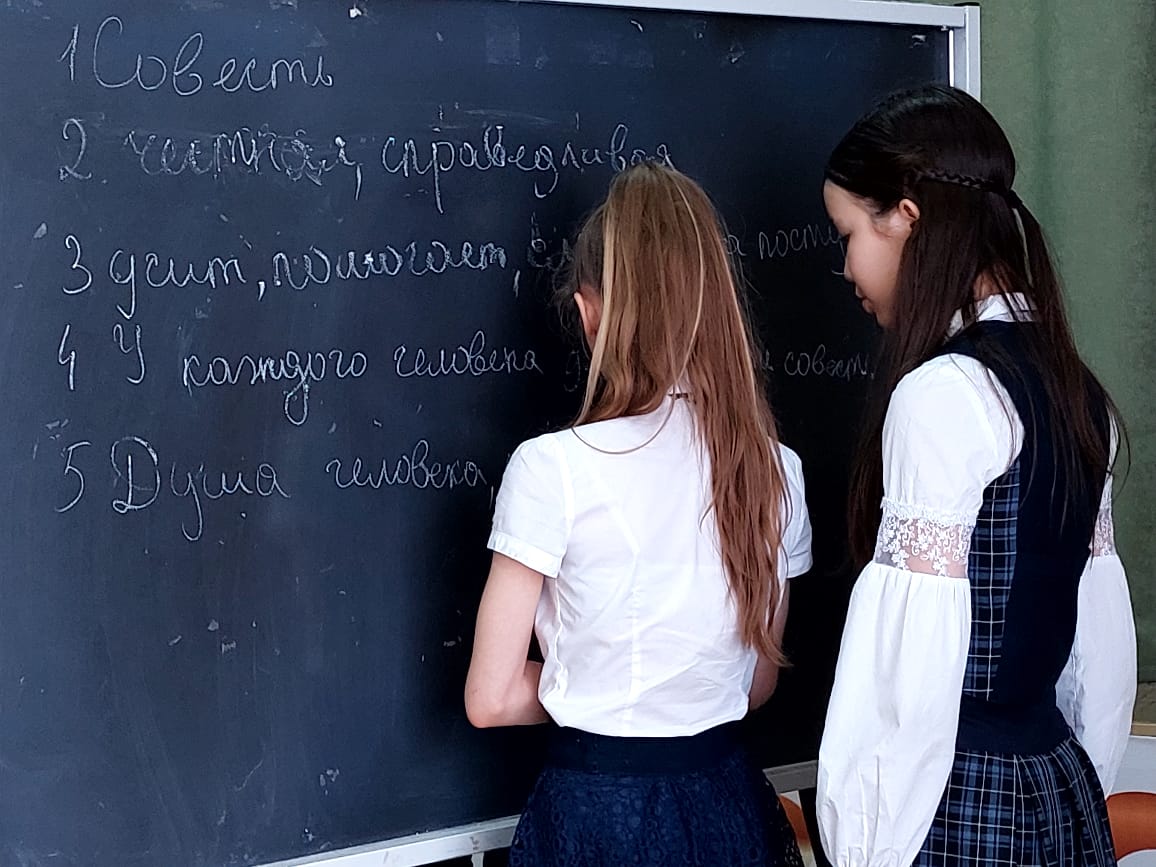 1 Совесть
2 честная, справедливая
3 усит, помогает,
4 У каждого человека совест
5 Душа человека,